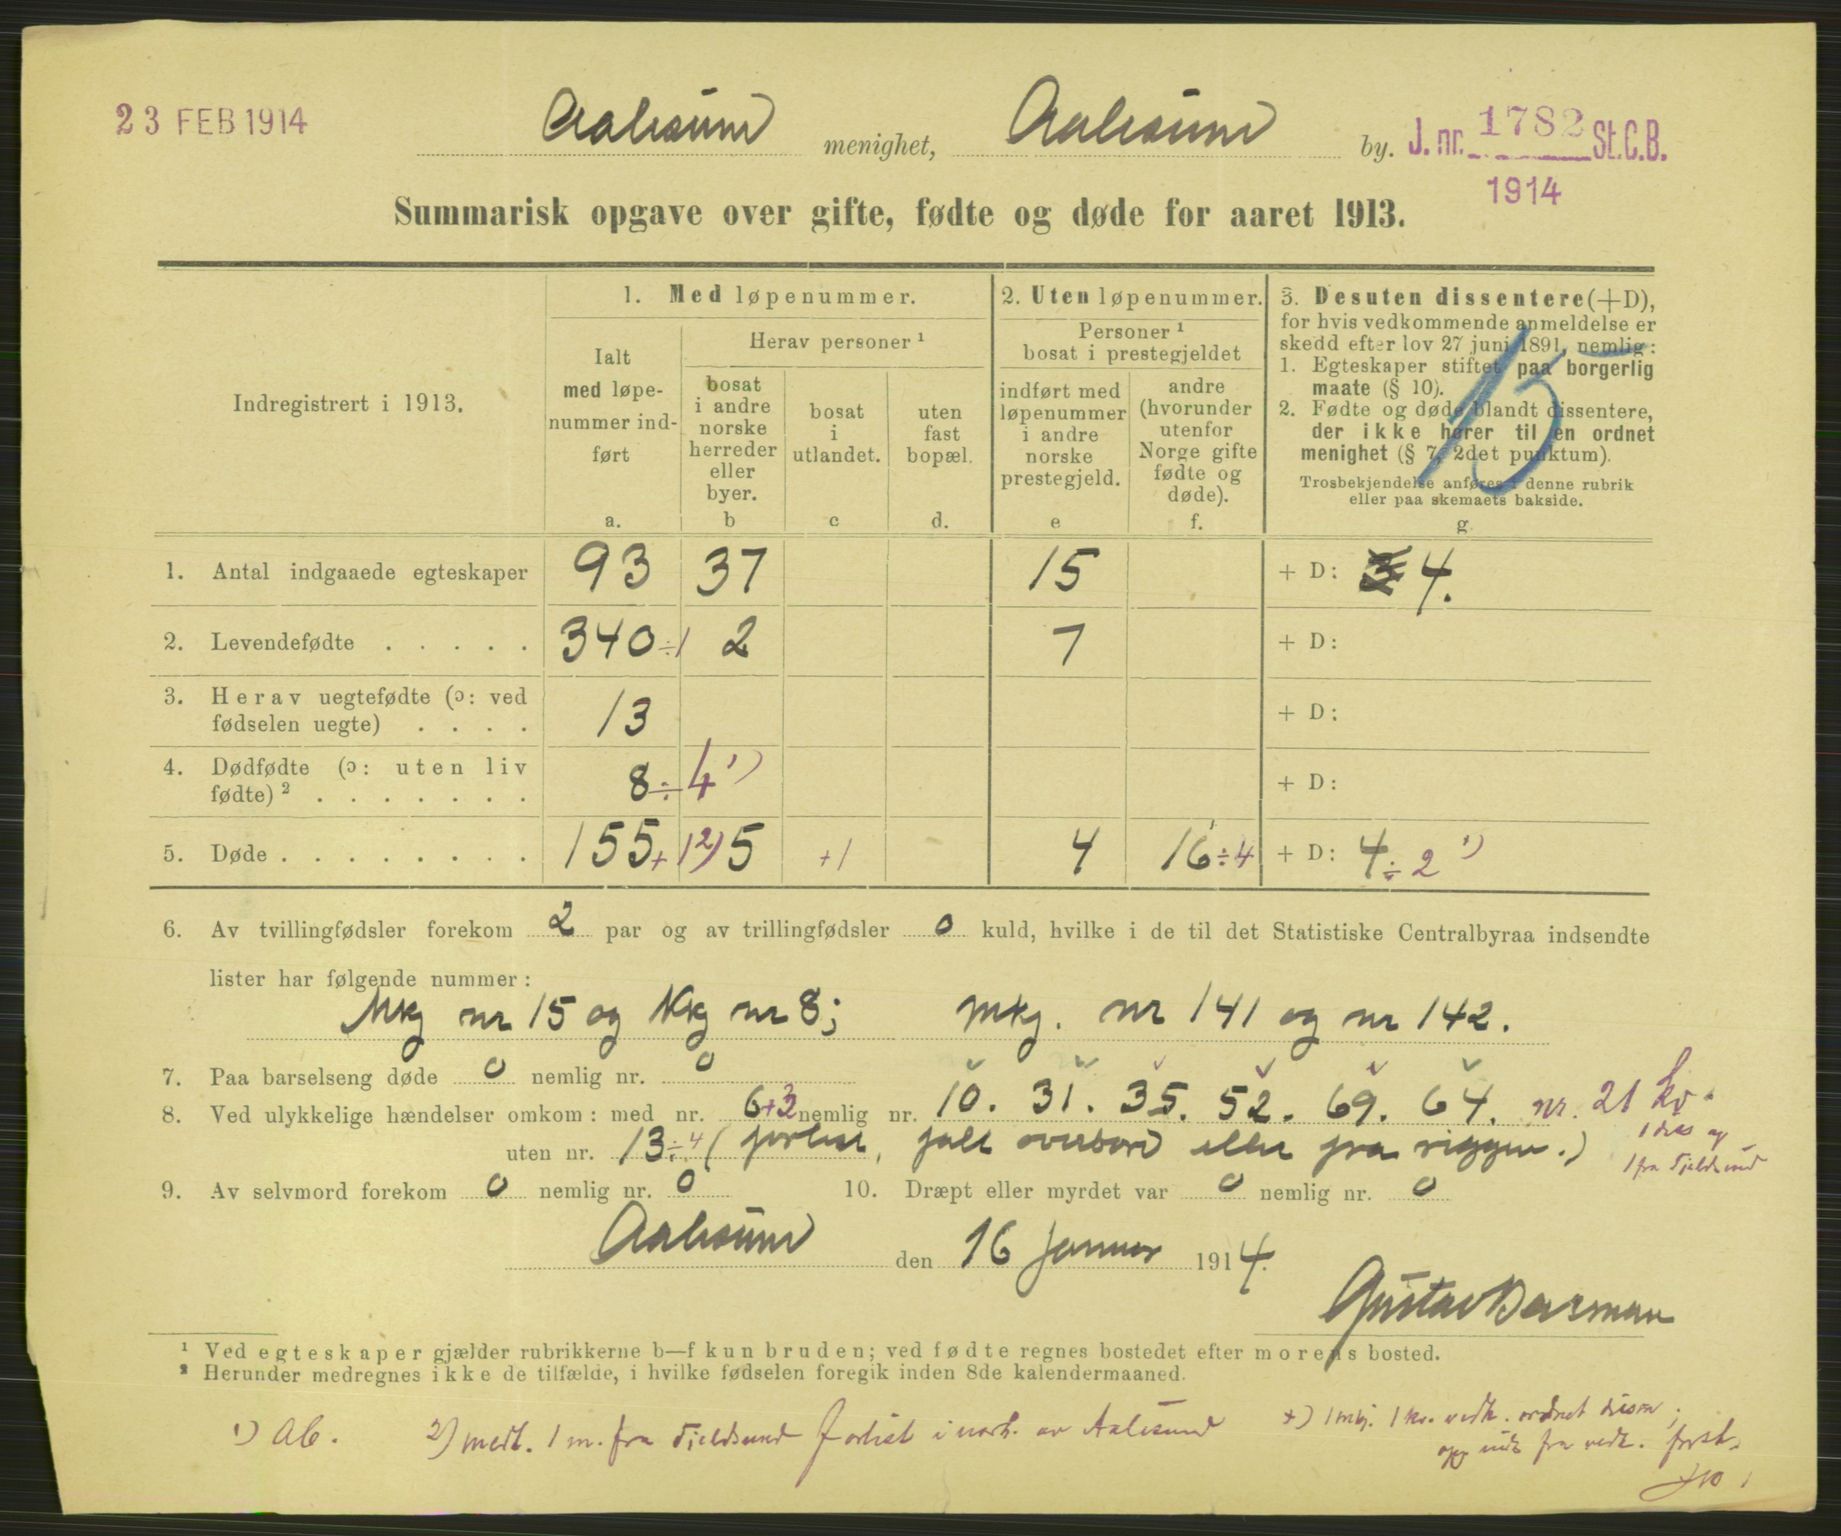 23 FEB 1914
Aalesund menighet, Aalesund by. J. nr. 1782 St.C.B.
1914
Summarisk opgave over gifte, fødte og døde for aaret 1913.
Indregistrert i 1913.
1. Med løpenummer.
Ialt
med løpe-
nummer ind-
ført
a.
Herav personer ¹
bosat
i andre
norske
herreder
eller
byer.
b
bosat
i
utlandet.
c
uten
fast
bopæl.
d.
2. Uten løpenummer.
Personer ¹
bosat i prestegjeldet
indført med
løpenummer
i andre
norske
prestegjeld.
e
andre
(hvorunder
utenfor
Norge gifte
fødte og
døde).
f.
3. Desuten dissentere (+D),
for hvis vedkommende anmeldelse er
skedd efter lov 27 juni 1891, nemlig:
1. Egteskaper stiftet paa borgerlig
maate (§ 10).
2. Fødte og døde blandt dissentere,
der ikke hører til en ordnet
menighet (§ 7, 2det punktum).
Trosbekjendelse anføres i denne rubrik
eller paa skemaets bakside.
g
15
1. Antal indgaaede egteskaper 93 37 15 + D: 3 4.
2. Levendefødte . . . . . 340 ÷1 2 7 + D:
3. Herav uegtefødte (ɔ: ved
fødselen uegte) . . . . 13 + D:
4. Dødfødte (ɔ: uten liv
fødte) ² . . . . . . . 8 ÷ 4 ¹) + D:
5. Døde . . . . . . . . 155 + 1 ²) 5 +1 4 16 ÷4 + D: 4 ÷ 2 ¹)
6. Av tvillingfødsler forekom 2 par og av trillingfødsler 0 kuld, hvilke i de til det Statistiske Centralbyraa indsendte
lister har følgende nummer:
Mkj nr 15 og Kkj nr 8; Mkj. nr 141 og nr 142.
7. Paa barselseng døde 0 nemlig nr. 0
8. Ved ulykkelige hændelser omkom: med nr. 6+3 nemlig nr. 10. 31. 35. 52. 69. 64. nr. 21 kv.
uten nr. 13 ÷4 (forlist, falt overbord eller fra riggen.)
1 fra Fjeldsund
9. Av selvmord forekom 0 nemlig nr. 0 10. Dræpt eller myrdet var 0 nemlig nr. 0
Aalesund den 16 Januar 1914.
Gustav Barman
¹ Ved egteskaper gjælder rubrikkerne b—f kun bruden; ved fødte regnes bostedet efter morens bosted.
² Herunder medregnes ikke de tilfælde, i hvilke fødselen foregik inden 8de kalendermaaned.
¹) Ab. ²) medt. 1 m. fra Fjeldsund forlist i nærh. av Aalesund
+) 1 mkj. 1 kv. vedk. ordnet diss.